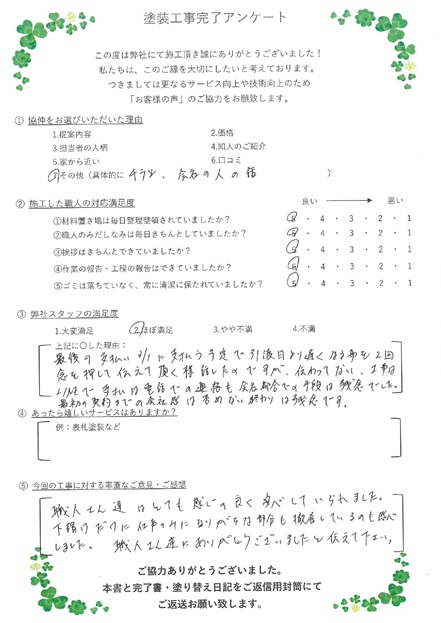 塗装工事完了アンケート
この度は弊社にて施工頂き誠にありがとうございました！
私たちは、このご縁を大切にしたいと考えております。
つきましては更なるサービス向上や技術向上のため
「お客様の声」のご協力をお願致します。
① 協伸をお選びいただいた理由
1.提案内容 2.価格
3.担当者の人柄 4.知人のご紹介
5.家から近い 6.口コミ
⑦その他（具体的に チラシ、会社の人の話 ）
② 施工した職人の対応満足度 良い 悪い
①材料置き場は毎日整理整頓されていましたか？ 5・4・3・2・1
②職人のみだしなみは毎日きちんとしていましたか？ 5・4・3・2・1
③挨拶はきちんとできていましたか？ 5・4・3・2・1
④作業の報告・工程の報告はできていましたか？ 5・4・3・2・1
⑤ゴミは落ちていなく、常に清潔に保たれていましたか？ 5・4・3・2・1
③ 弊社スタッフの満足度
1.大変満足 ②ほぼ満足 3.やや不満 4.不満
上記に○した理由：
最後の支払い に支払う予定で引渡日より遅くなる事を2回
念を押して伝えて頂く様話したのですが、伝わってない、
最初の契約までの会社感は否めない終わりは残念です。
④ あったら嬉しいサービスはありますか？
例：表札塗装など
⑤ 今回の工事に対する率直なご意見・ご感想
職人さん達はとても感じの良く安心していられました。
下請けだけに仕事のみになりがちな部分も徹底しているのも感心
しました。職人さん達にありがとうございましたと伝えて下さい。
ご協力ありがとうございました。
本書と完了書・塗り替え日記をご返信用封筒にて
ご返送お願い致します。